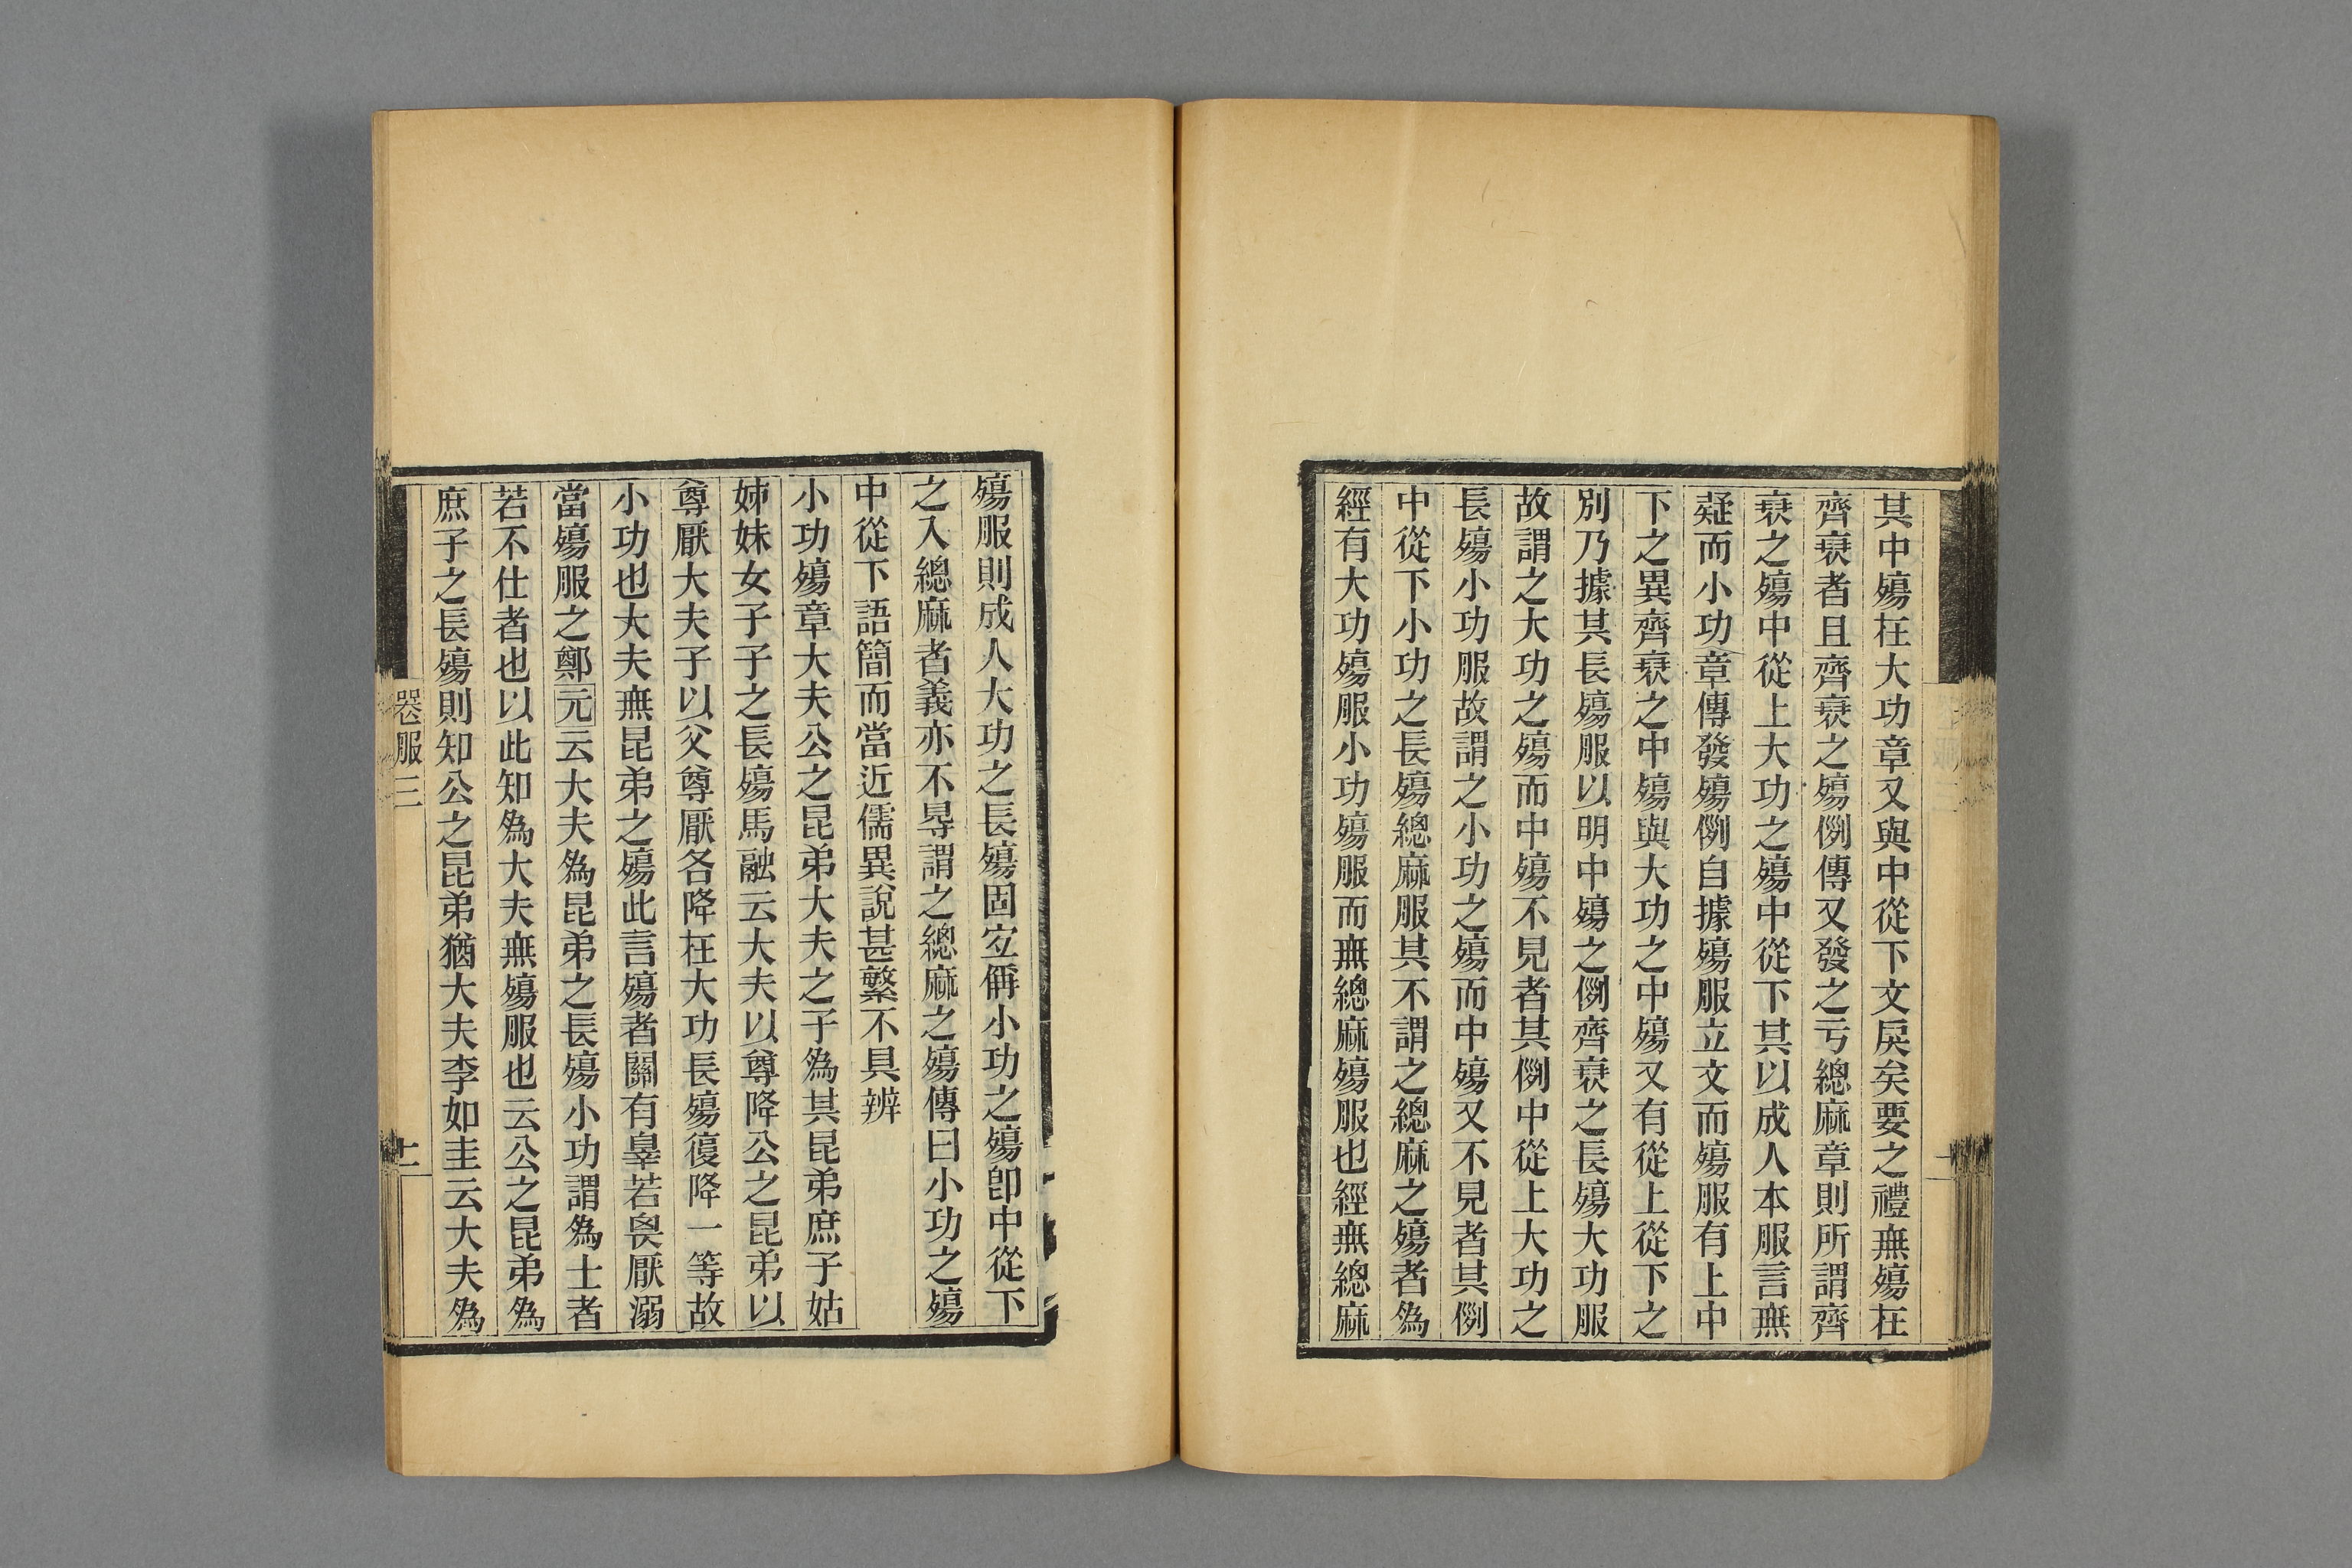 其中殤在大功章又與中從下文戾矣要之禮無殤在
齊衰者且齊衰之殤例傳又發之亏緦麻章則所謂齊
衰之殤中從上大功之殤中從下其以成人本服言無
疑而小功章傳發殤例自據殤服立文而殤服有上中
下之異齊衰之中殤與大功之中殤又有從上從下之
別乃據其長殤服以明中殤之例齊衰之長殤大功服
故謂之大功之殤而中殤不見者其例中從上大功之
長殤小功服故謂之小功之殤而中殤又不見者其例
中從下小功之長殤緦麻服其不謂之緦麻之殤者為
經有大功殤服小功殤服而無緦麻殤服也經無緦麻
殤服則成人大功之長殤固宐偁小功之殤卽中從下
之入緦麻者義亦不㝵謂之緦麻之殤傳曰小功之殤
中從下語簡而當近儒異說甚繁不具辨
小功殤章大夫公之昆弟大夫之子為其昆弟庶子姑
姊妹女子子之長殤馬融云大夫以尊降公之昆弟以
尊厭大夫子以父尊厭各降在大功長殤復降一等故
小功也大夫無昆弟之殤此言殤者關有辠若畏厭溺
當殤服之鄭元云大夫為昆弟之長殤小功謂為士者
若不仕者也以此知為大夫無殤服也云公之昆弟為
庶子之長殤則知公之昆弟猶大夫李如圭云大夫為
喪服三
十二